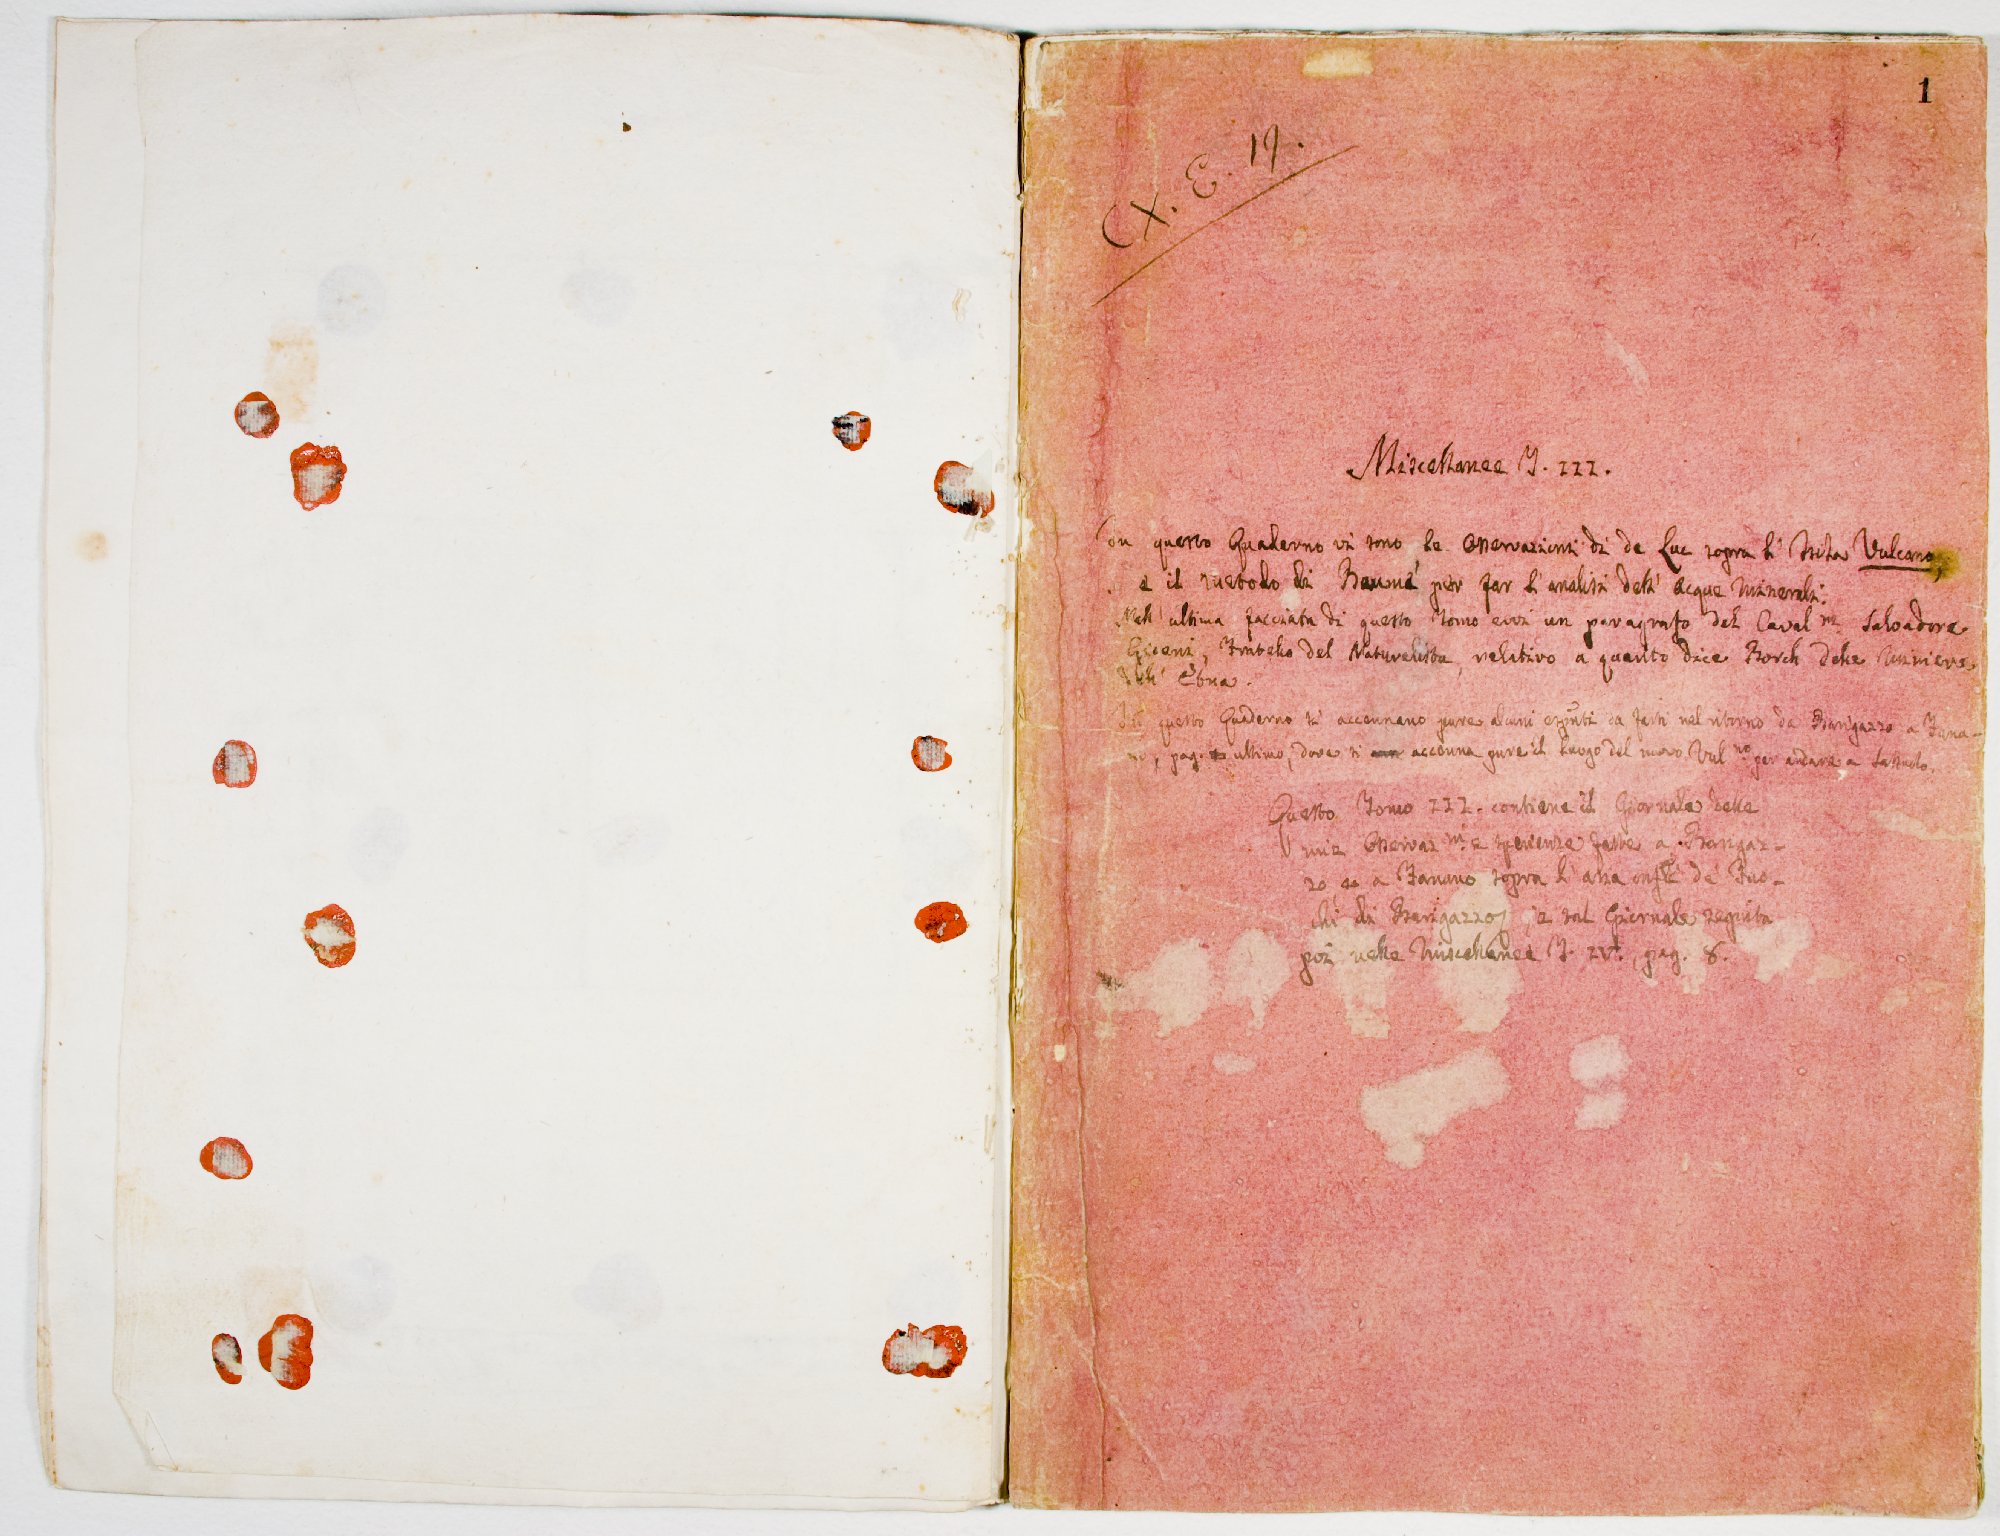 1
CX. E. 19.
Miscellanee T. III.
In questo Quaderno vi sono le Osservazioni di de Luc sopra l' Isola Vulcano,
e il metodo di Beaumé per far l' analisi dell' acque minerali.
Nell' ultima facciata di questo Tomo evvi un paragrafo del Caval.re Salvadore
Gioeni, Fratello del Naturalista, relativo a quanto dice Borch delle miniere
dell' Etna.
In questo Quaderno si accennano pure alcuni da farsi nel ritorno da Barigazzo a Fana-
no, pag. ultimo, dove si accenna pure il luogo del nuovo Vul.no per andare a Sassuolo.
Questo Tomo III. contiene il Giornale delle
mie Osservaz.ni e sperienze fatte a Barigaz-
zo a Fanano sopra l' aria de' Fuo-
chi di Barigazzo, e tal Giornale seguita
poi nelle Miscellanee T. IV., pag. 8.